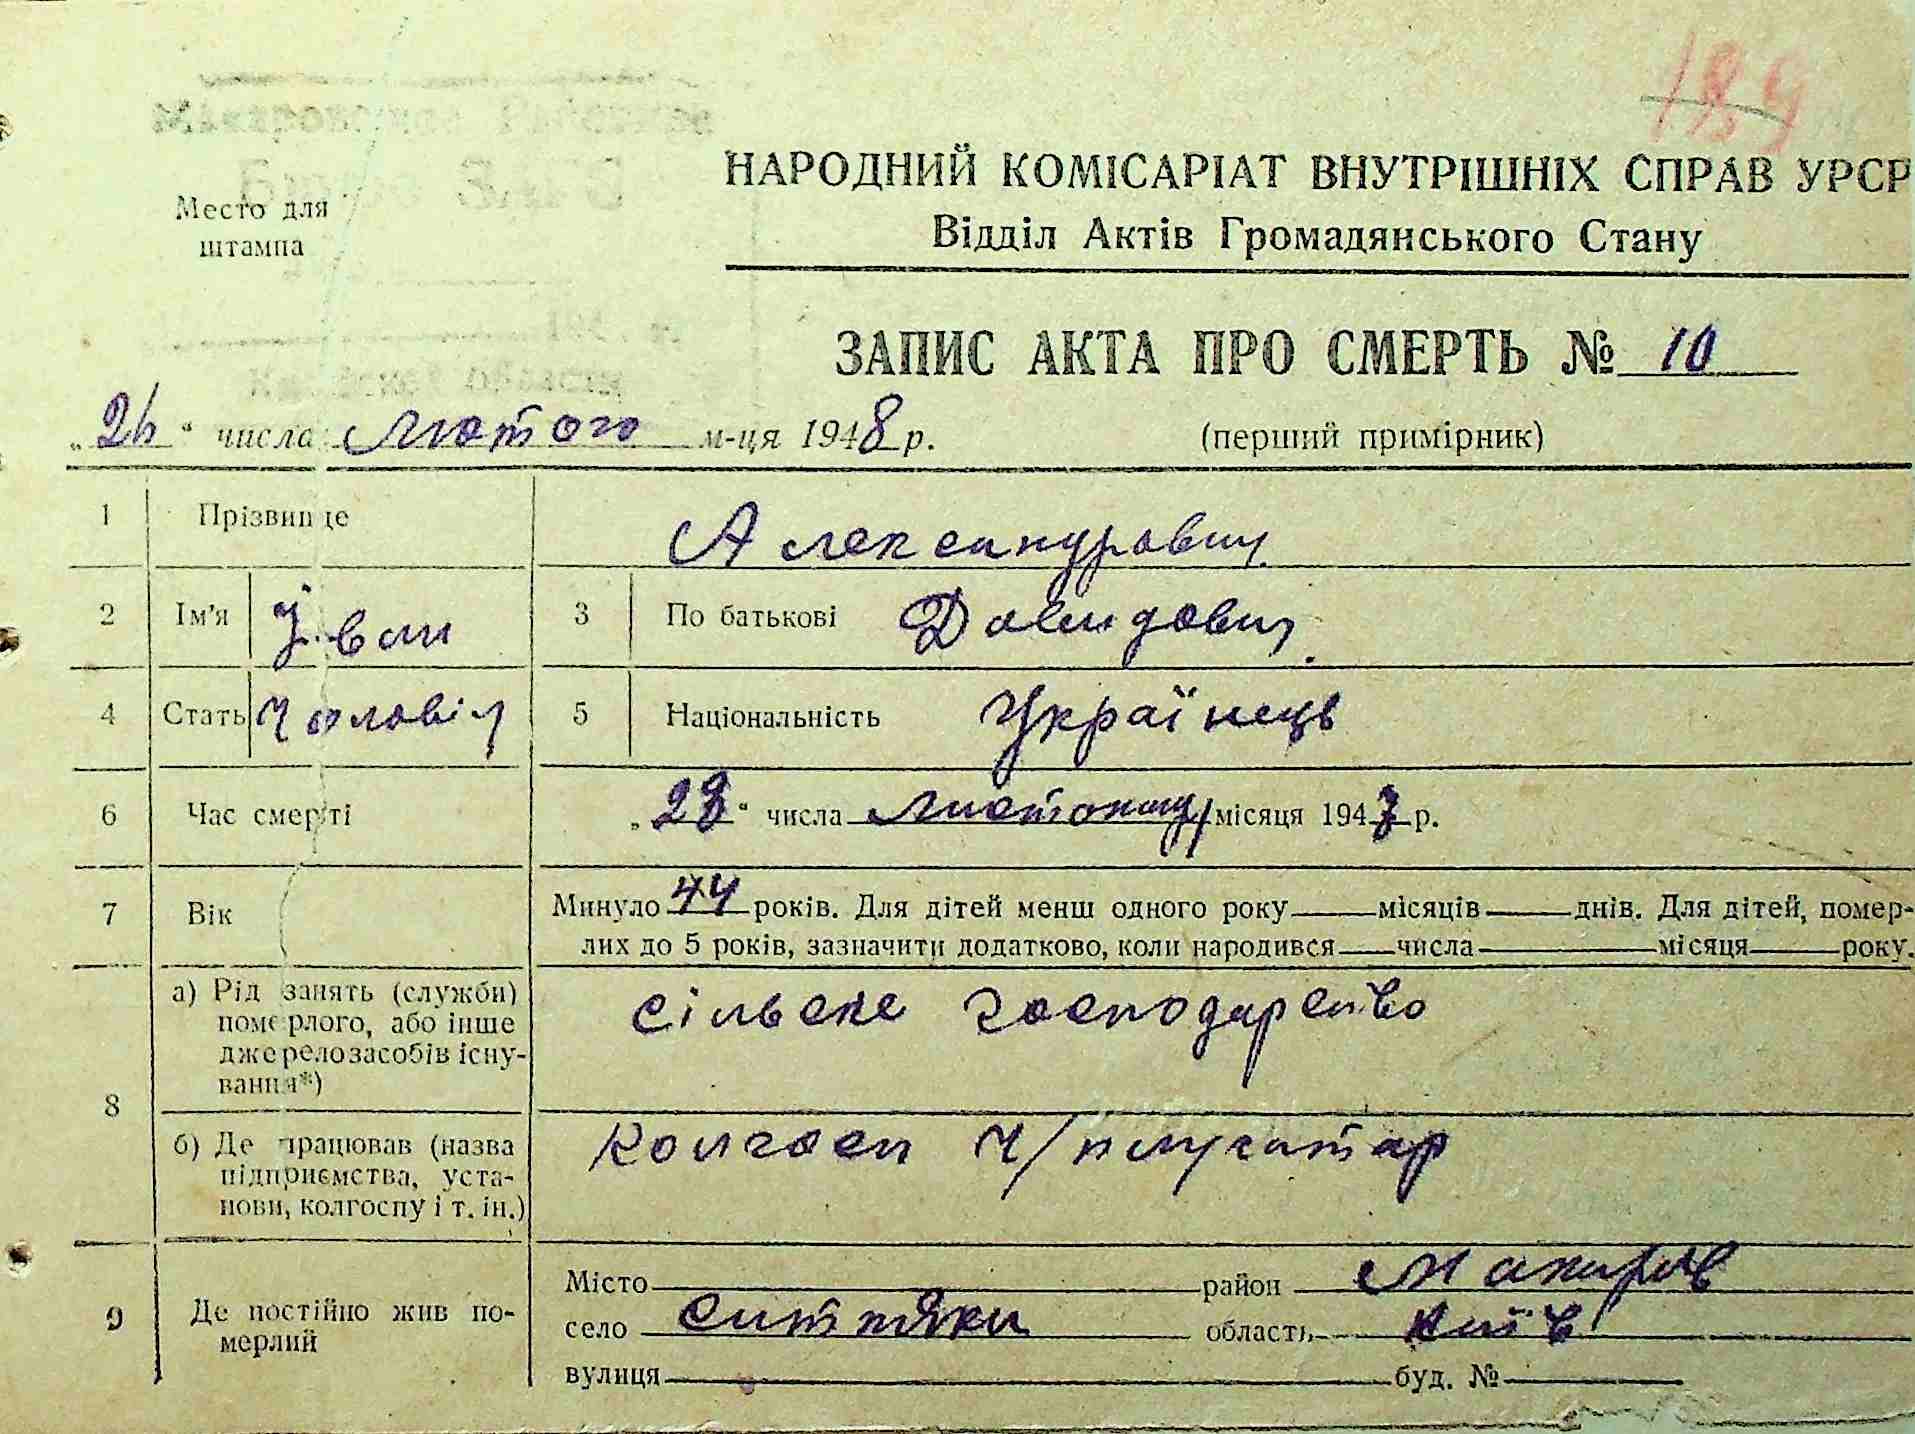 189
НАРОДНИЙ КОМІСАРІАТ ВНУТРІШНІХ СПРАВ УРСР
Место для
штампа
Відділ Актів Громадянського Стану
ЗАПИС АКТА ПРО СМЕРТЬ № 10
„ “ числа Лютого м-ця 1948 р. (перший примірник)
1 Прізвище Александрович
2 Ім'я Іван 3 По батькові Давидович.
4 Стать Чоловіч 5 Національність Українець
6 Час смерті „28“ числа Листопаду місяця 1947 р.
7 Вік Минуло 44 років. Для дітей менш одного року місяців днів. Для дітей, помер-
лих до 5 років, зазначити додатково, коли народився числа місяця року.
8 а) Рід занять (служби) померлого, або інше джерело засобів існування*) сільське господарство
б) Де працював (назва підприємства, установи, колгоспу і т. ін.) Колгосп
9 Де постійно жив померлий
Місто район Макарів
село Ситняки область Київ
вулиця буд. №